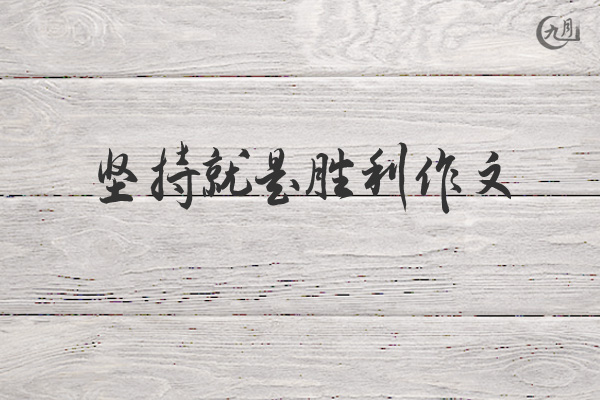 九月
坚持就是胜利作文